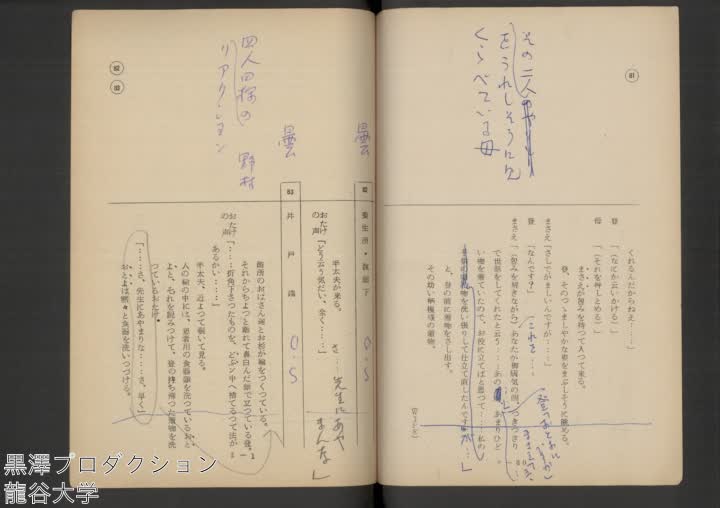 81
その二人のやりとり
をうれしそうに見
くらべている母
くれるんだからねえ……」
登「(なにか云いかける)」
母「(それを押しとめる)」
まさえが包みを持って入って来る。
登、そのつゝましやかな姿をまぶしそうに眺める。
まさえ「さしでがましいんですが……」
登「なんです?」
これを…
で世話をしてくれたと云う
い物を着ていたので、お役に立てばと思って……私の
物を洗い張りして仕立て直したんですが…」
と、登の前に着物をさし出す。
その幼い柄模様の着物。
82
83
四人四様の
リアクション
野村
曇
曇
82 養生所・裏廊下
O・S
半太夫が来る。
おたけの声「どう云う気だい、全く……」
さ…先生にあや
まんな」
83 井戸端
O・S
賄所のおばさん達とお杉が輪をつくっている。
それからちょっと離れて鼻白んだ顔で立っている登。
おたけの声「……折角下さったものを、どぶン中へ捨てるって法が
あるかい……」
半太夫、近よって覗いて見る。
人の輪の中には、患者用の食器類を洗っているおと
よと、それを睨みつけて、登の持ち帰った着物を洗
っているおたけ。
「……さ、先生にあやまりな……さ、早く」
おとよは黙々と食器を洗いつづける。
黒澤プロダクション
龍谷大学